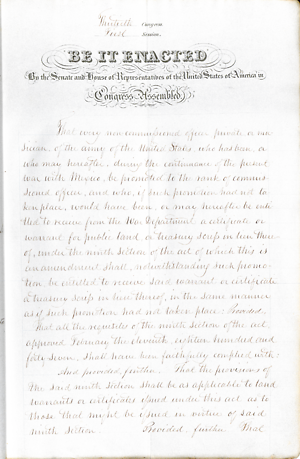 Thirtieth Congress
First Session.
BE IT ENACTED
By the Senate and House of Representatives of the United States of America in
Congress Assembled,
That every non-commissioned officer, private or mu-
sician, of the army of the United States, who has been, or
who may hereafter, during the continuance of the present
war with Mexico, be promoted to the rank of commis-
sioned officer, and who, if such promotion had not ta-
ken place, would have been, or may hereafter be enti-
tled to receive from the War Department a certificate or
warrant for public land, or treasury scrip in lieu there-
of, under the ninth section of the act of which this is
an amendment shall, notwithstanding such promo-
tion, be entitled to receive said warrant or certificate
or treasury scrip in lieu thereof, in the same manner
as if such promotion had not taken place: Provided,
That all the requisites of the ninth section of the act,
approved February the eleventh, eighteen hundred and
forty seven, shall have been faithfully complied with:
And provided, further, That the provisions of
the said ninth section shall be as applicable to land
warrants or certificates issued under this act as to
those that might be issued in virtue of said
ninth section. Provided, further, That